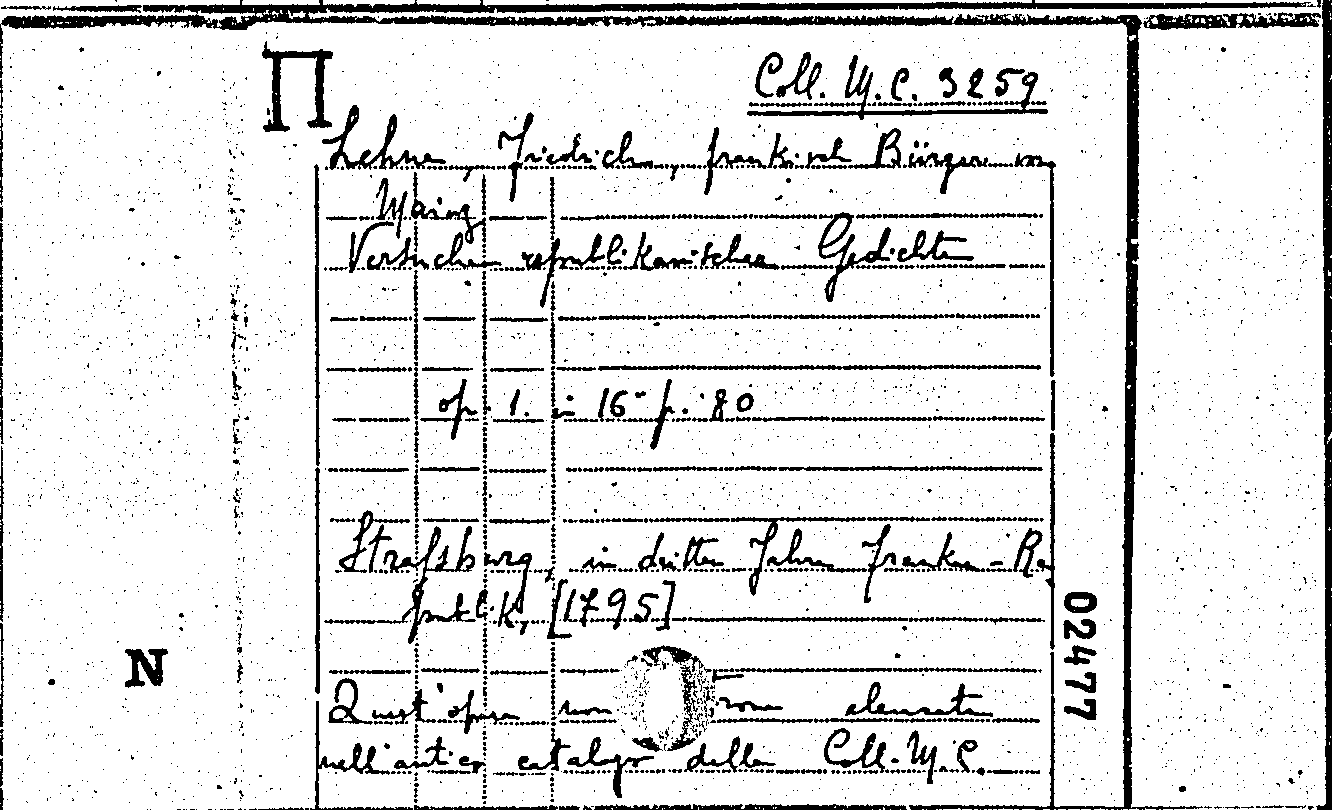 Π
Coll. M.C. 3259
Lehne, Friedrich, fränkisch Bürger in
Mainz
Versuche republikanischer Gedichte
op. 1. in 16° p. 80
Straßburg, in dritten Jahre Franken-Re
publik, [1795]
02477
N
Quest'opera non elencata
nell'antico catalogo della Coll. M.C.